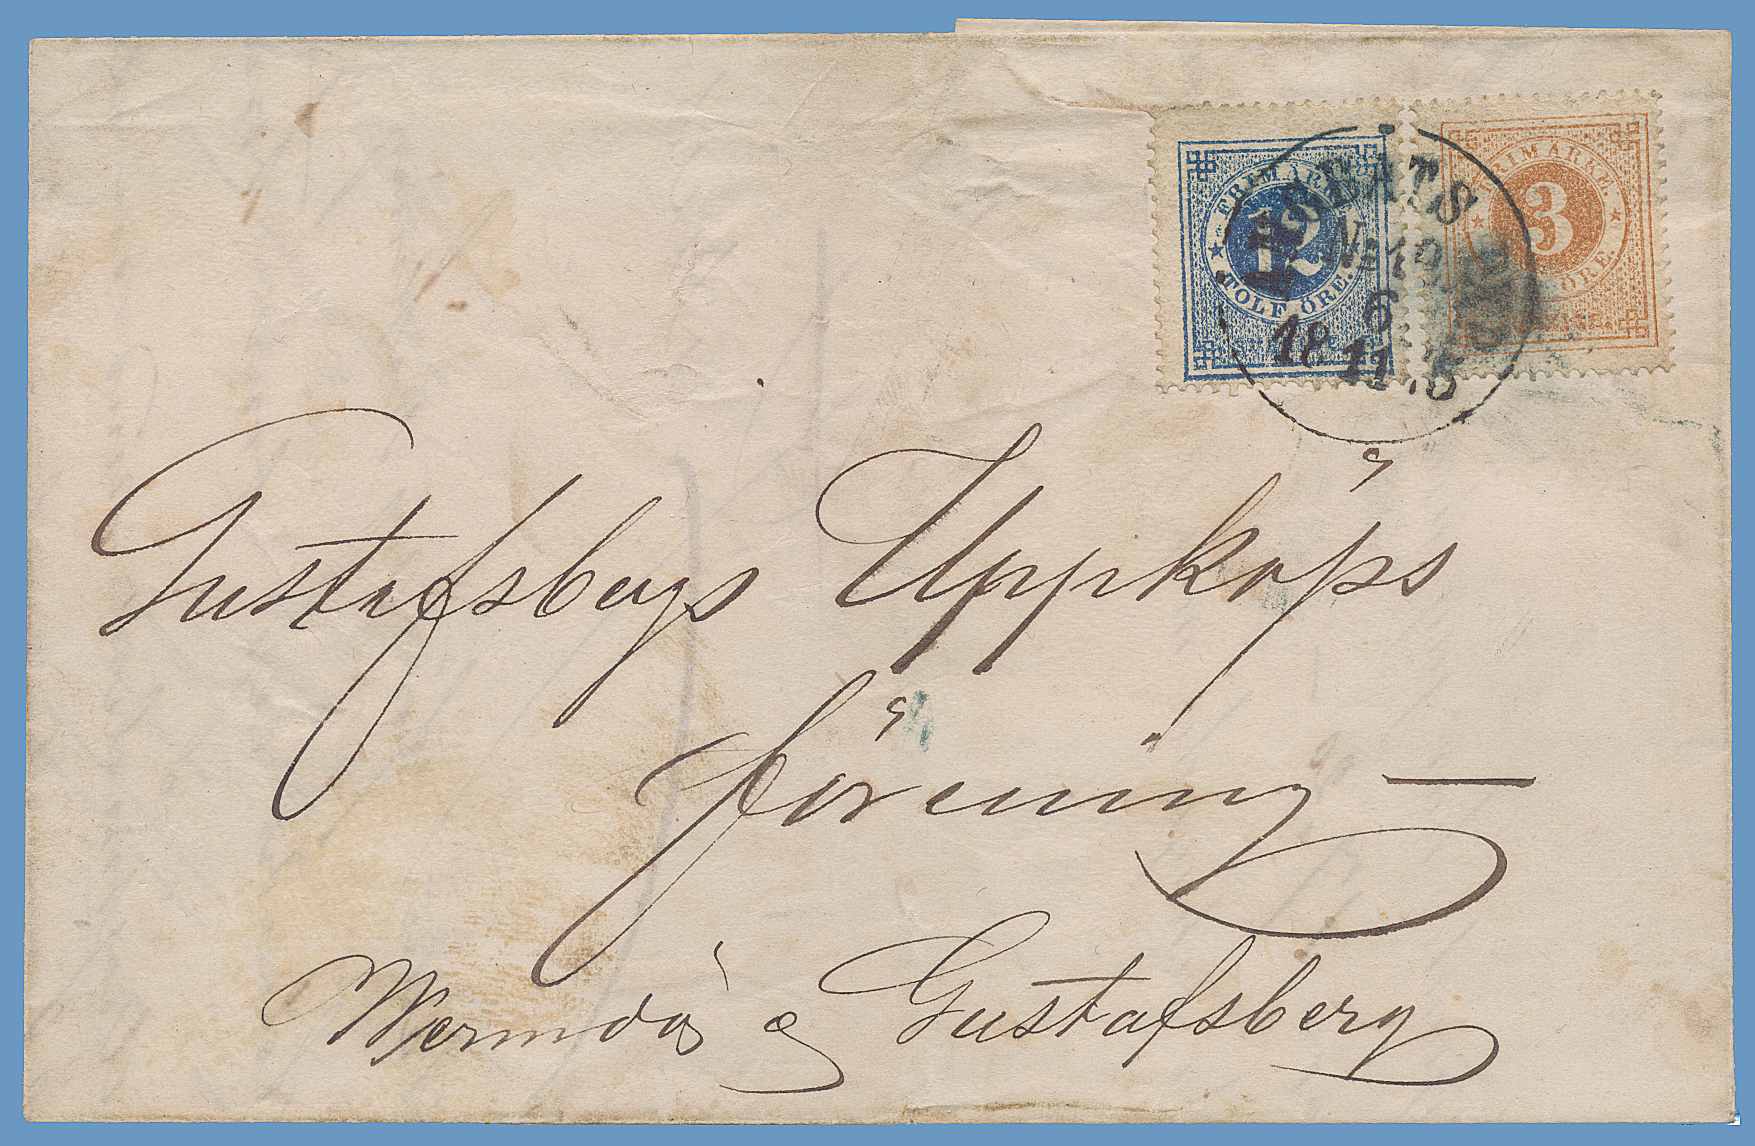 FRIMÄRKE.
12
TOLF ÖRE.
FRIMÄRKE.
3
ÖRE.
No 10
6
18 11
Gustafsbergs Uppköps
förening —
Wermdö & Gustafsberg